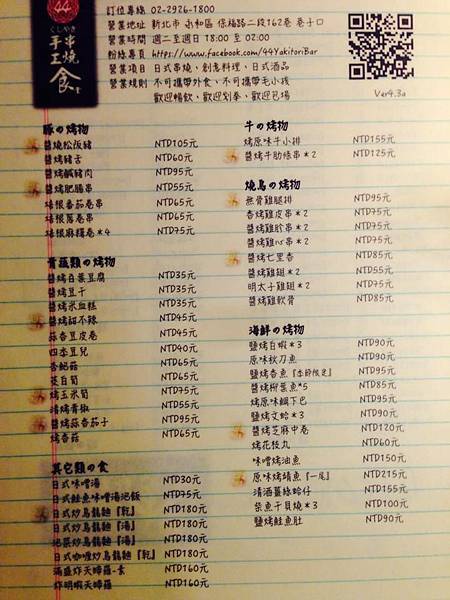 44
くしやき
手串
工燒
食
訂位專線 02-2926-1800
營業地址 新北市 永和區 保福路二段162巷 巷子口
營業時間 週二至週日 18:00 至 02:00
粉絲專頁 https://www.facebook.com/44YakitoriBar
營業項目 日式串燒、創意料理、日式酒品
營業規則 不可攜帶外食、不可攜帶毛小孩
歡迎暢飲、歡迎划拳、歡迎包場
Ver4.3a
豚の烤物
醬燒松阪豬 NTD105元
醬烤豬舌 NTD60元
醬烤鹹豬肉 NTD95元
醬烤肥腸串 NTD55元
培根番茄卷串 NTD65元
培根蔥卷串 NTD65元
培根麻糬卷*4 NTD75元
青蔬類の烤物
醬烤白葉豆腐 NTD35元
醬烤豆干 NTD35元
醬烤米血糕 NTD35元
醬烤甜不辣 NTD45元
蒜香豆皮卷 NTD45元
四季豆兒 NTD40元
杏鮑菇 NTD65元
茭白筍 NTD65元
烤玉米筍 NTD75元
清烤青椒 NTD55元
醬烤蒜香茄子 NTD95元
烤香菇 NTD65元
其它類の食
日式味噌湯 NTD30元
日式鮭魚味噌湯泡飯 NTD75元
日式炒烏龍麵『乾』 NTD180元
日式炒烏龍麵『湯』 NTD180元
泡菜炒烏龍麵『湯』 NTD180元
日式咖喱炒烏龍麵『乾』 NTD180元
滿盛炸天婦羅-素 NTD160元
炸明蝦天婦羅 NTD160元
牛の烤物
烤原味牛小排 NTD155元
醬烤牛肋條串*2 NTD125元
燒鳥の烤物
無骨雞腿排 NTD95元
香烤雞皮串*2 NTD75元
醬烤雞胗串*2 NTD75元
醬烤雞心串*2 NTD75元
醬烤七里香 NTD85元
醬烤雞翅*2 NTD55元
明太子雞翅*2 NTD75元
醬烤雞軟骨 NTD85元
海鮮の烤物
鹽烤白蝦*3 NTD90元
原味秋刀魚 NTD90元
鹽烤香魚『季節限定』 NTD95元
醬烤柳葉魚*5 NTD85元
烤原味鯛下巴 NTD95元
鹽烤文蛤*3 NTD90元
醬烤芝麻中卷 NTD120元
烤花枝丸 NTD60元
味噌烤油魚 NTD150元
原味烤鯖魚『一尾』 NTD215元
清酒薑絲蛤仔 NTD155元
柴魚干貝燒*3 NTD100元
鹽烤鮭魚肚 NTD90元